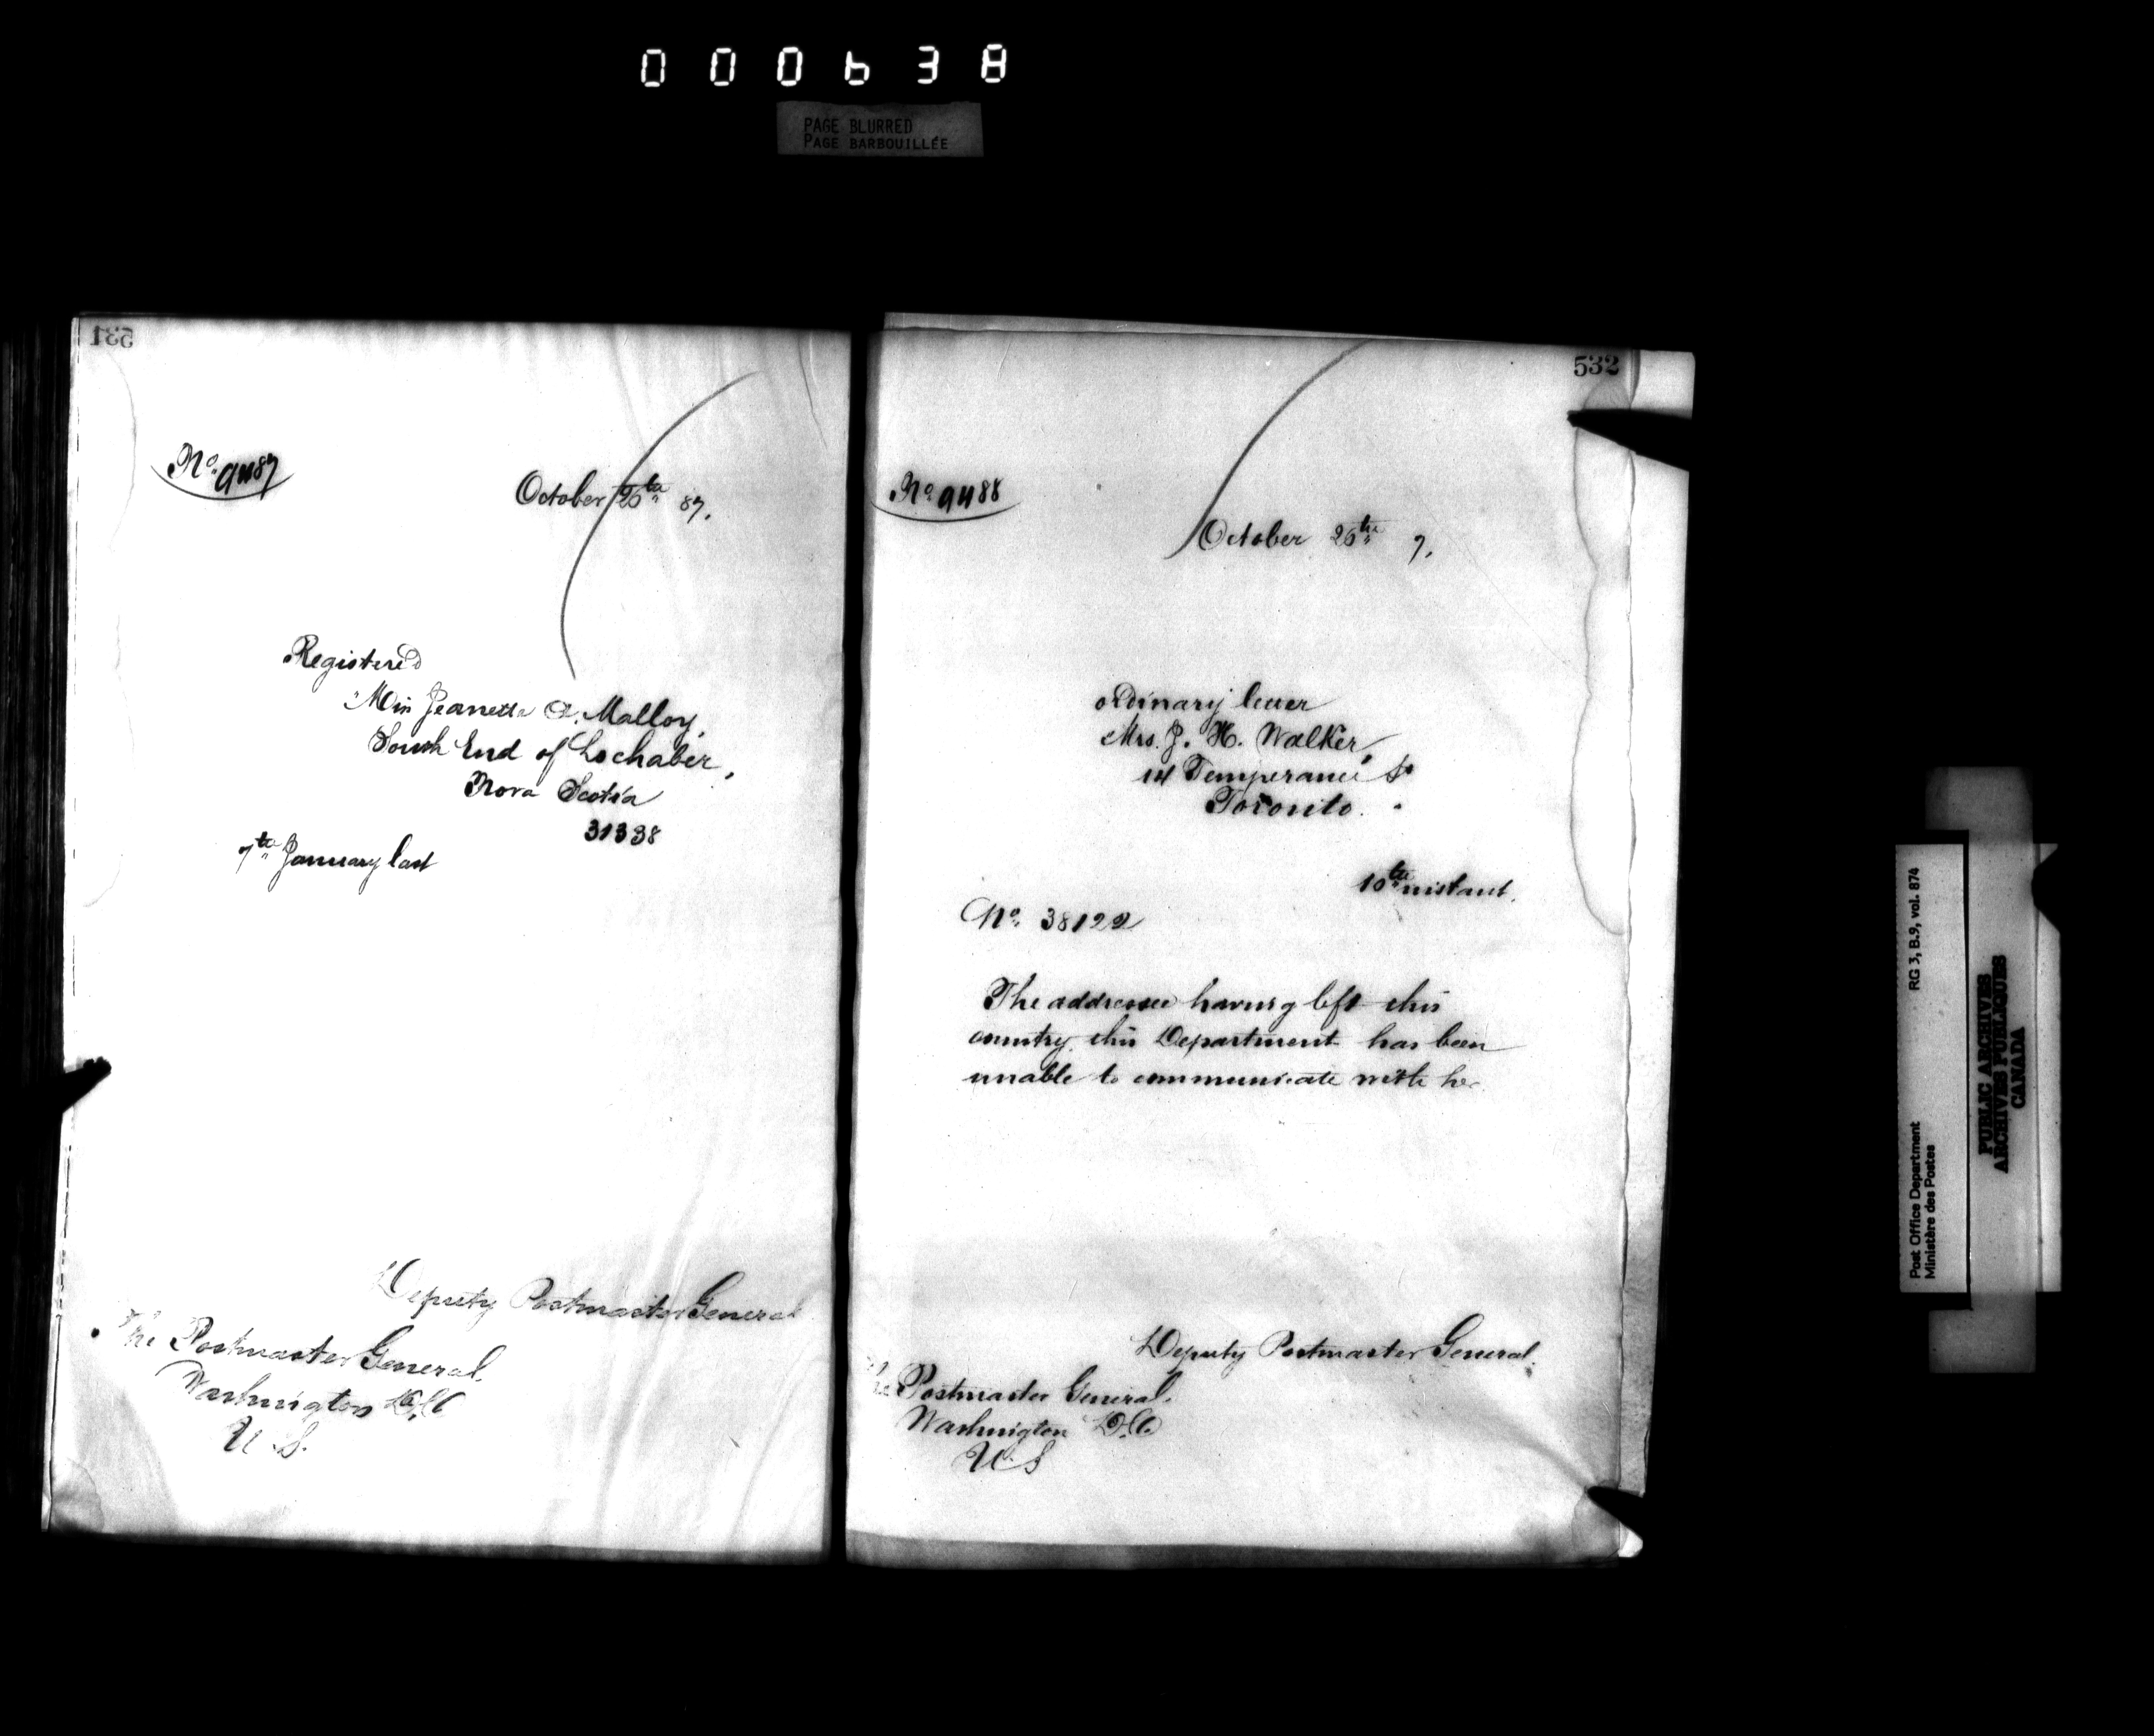 000638
PAGE BLURRED
PAGE BARBOUILLÉE
531
No. 9487
October 26th 87.
Registered
Miss Jeanette A. Malloy,
South End of Lochaber,
Nova Scotia
31338
7th January last
Deputy Postmaster General
The Postmaster General.
Washington D.C
U.S.
532
No. 9488
October 26th 7.
ordinary letter
Mrs. J. H. Walker,
14 Temperance St
Toronto.
10th instant.
No. 38122
The addressee having left this
country this Department has been
unable to communicate with her
Deputy Postmaster General.
The Postmaster General.
Washington D.C.
U.S
Post Office Department
Ministère des Postes
RG 3, B.9, vol. 874
PUBLIC ARCHIVES
ARCHIVES PUBLIQUES
CANADA